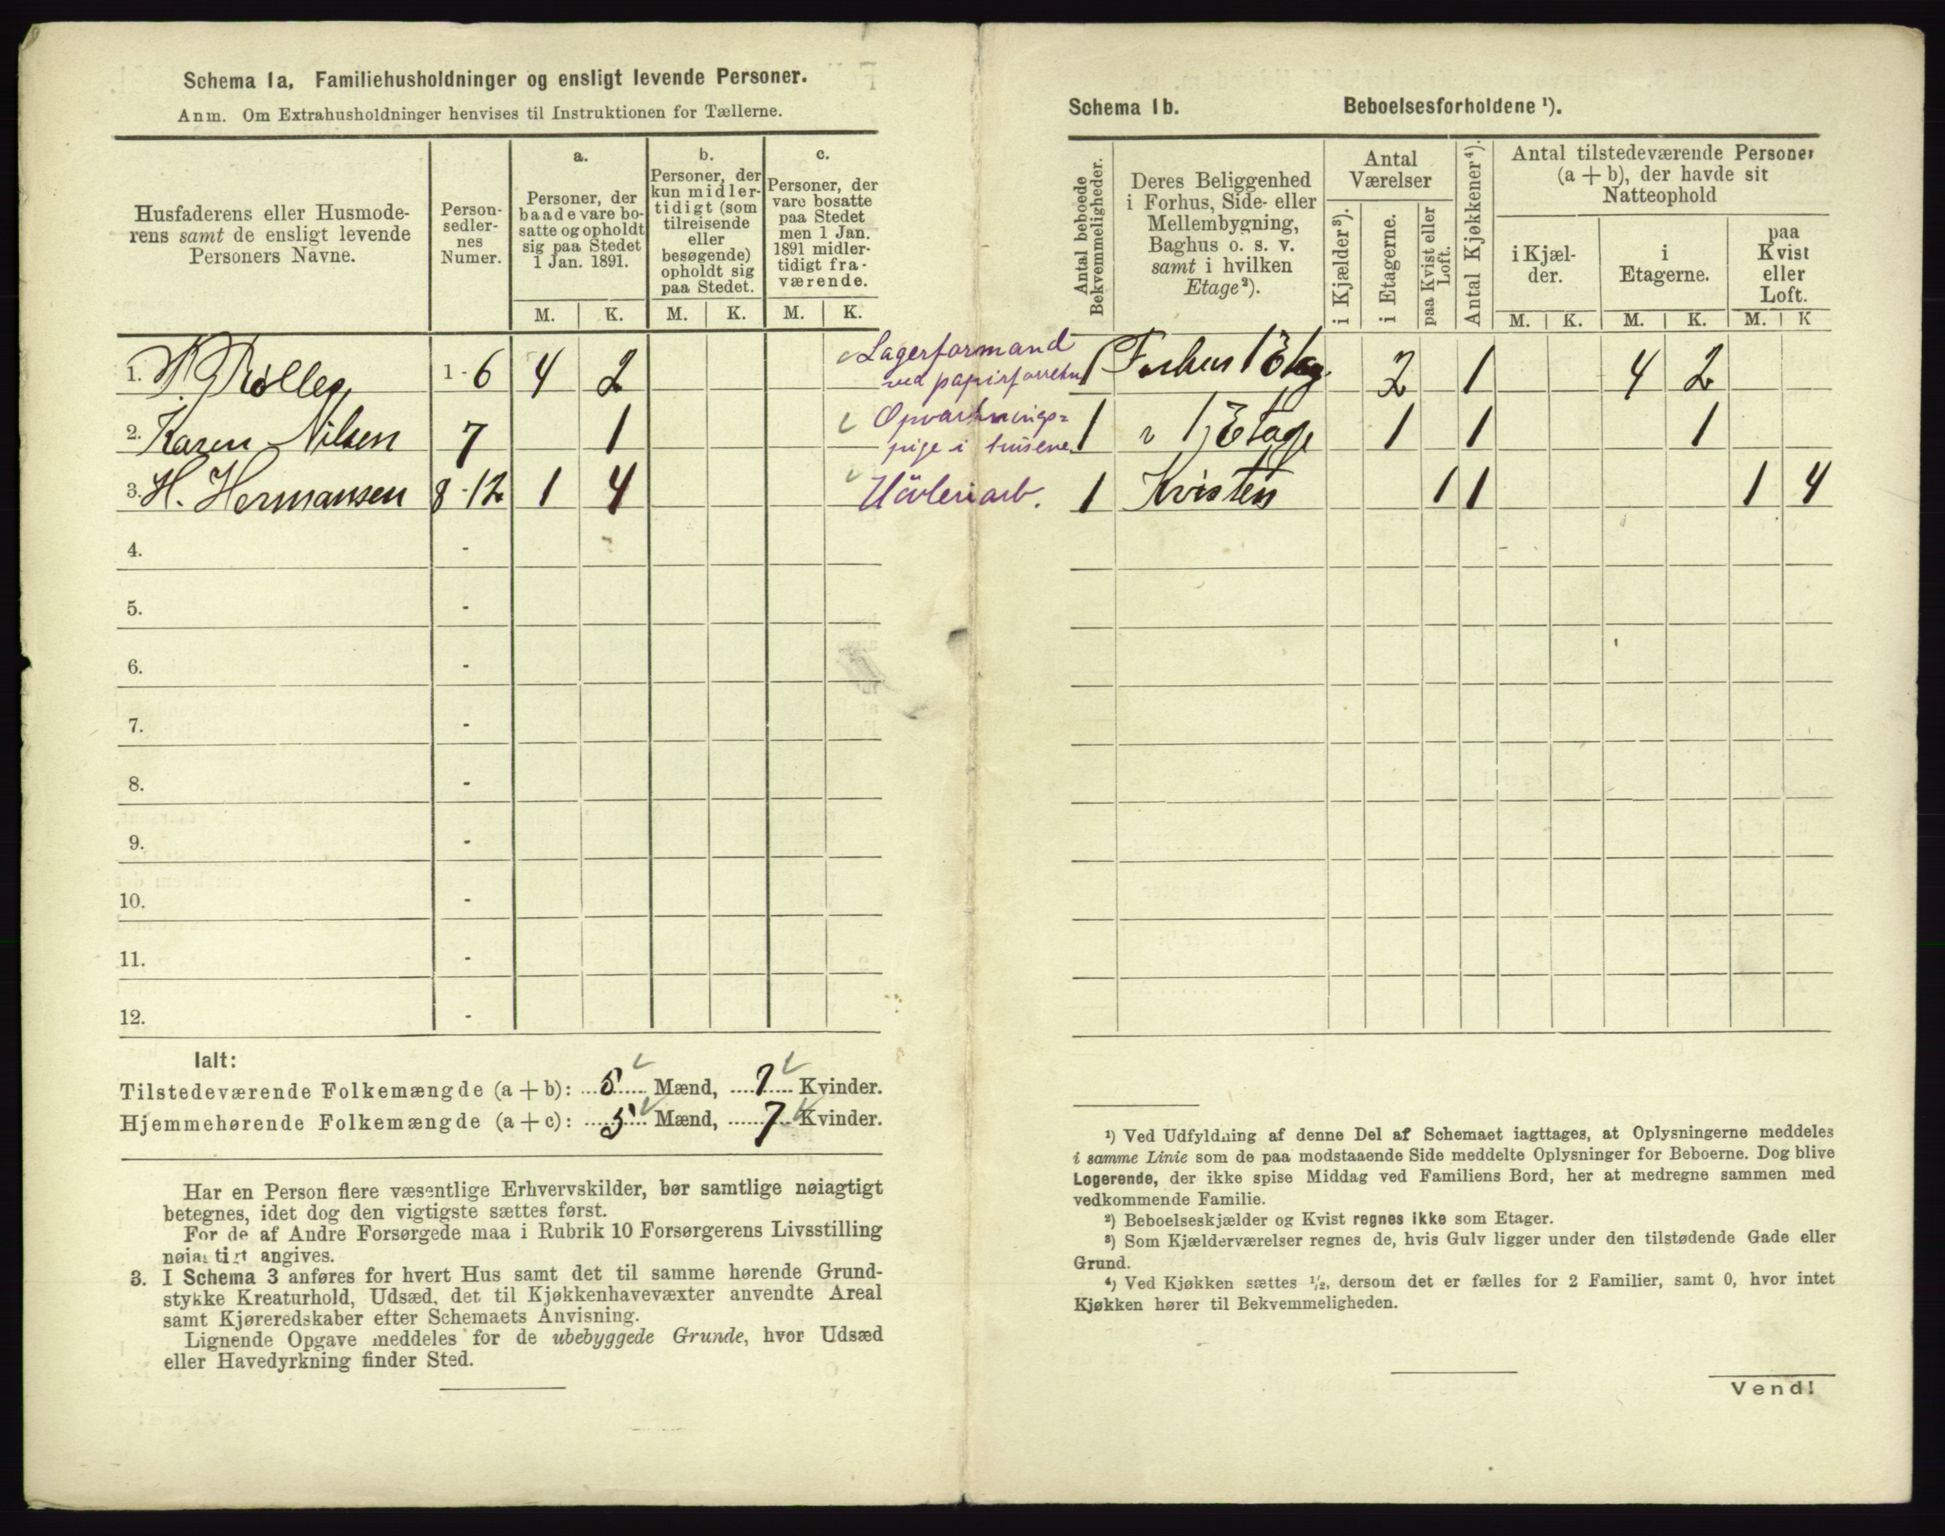 Schema 1a, Familiehusholdninger og ensligt levende Personer.
Anm. Om Extrahusholdninger henvises til Instruktionen for Tællerne.
Husfaderens eller Husmode-
rens samt de ensligt levende
Personers Navne.
Person-
sedler-
nes
Numer.
a.
Personer, der
baade vare bo-
satte og opholdt
sig paa Stedet
1 Jan. 1891.
b.
Personer, der
kun midler-
tidigt (som
tilreisende
eller
besøgende)
opholdt sig
paa Stedet.
c.
Personer, der
vare bosatte
paa Stedet
men 1 Jan.
1891 midler-
tidigt fra-
værende.
M. K. M. K. M. K.
1. 1-6 4 2 Lagerformand
ved papirforretn
2. Karen Nilsen 7 1 Opvartnings-
pige i husene
3. H. Hermansen 8-12 1 4 Hövleriarb.
4. -
5. -
6. -
7. -
8. -
9. -
10. -
11. -
12. -
Ialt:
Tilstedeværende Folkemængde (a + b): 5 Mænd, 7 Kvinder.
Hjemmehørende Folkemængde (a + c): 5 Mænd, 7 Kvinder.
Har en Person flere væsentlige Erhvervskilder, bør samtlige nøiagtigt
betegnes, idet dog den vigtigste sættes først.
For de af Andre Forsørgede maa i Rubrik 10 Forsørgerens Livsstilling
nøiagtigt angives.
3. I Schema 3 anføres for hvert Hus samt det til samme hørende Grund-
stykke Kreaturhold, Udsæd, det til Kjøkkenhavevæxter anvendte Areal
samt Kjøreredskaber efter Schemaets Anvisning.
Lignende Opgave meddeles for de ubebyggede Grunde, hvor Udsæd
eller Havedyrkning finder Sted.
Schema 1b. Beboelsesforholdene ¹).
Antal beboede
Bekvemmeligheder.
Deres Beliggenhed
i Forhus, Side- eller
Mellembygning,
Baghus o. s. v.
samt i hvilken
Etage²).
Antal
Værelser
i Kjælder³).
i Etagerne.
paa Kvist eller
Loft.
Antal Kjøkkener⁴).
Antal tilstedeværende Personer
(a + b), der havde sit
Natteophold
i Kjæl-
der.
i
Etagerne.
paa
Kvist
eller
Loft.
M. K. M. K. M. K
1 Forhus 1 Etag. 2 1 4 2
1 " 1 Etage 1 1 1
1 Kvisten 1 1 1 4
¹) Ved Udfyldning af denne Del af Schemaet iagttages, at Oplysningerne meddeles
i samme Linie som de paa modstaaende Side meddelte Oplysninger for Beboerne. Dog blive
Logerende, der ikke spise Middag ved Familiens Bord, her at medregne sammen med
vedkommende Familie.
²) Beboelseskjælder og Kvist regnes ikke som Etager.
³) Som Kjælderværelser regnes de, hvis Gulv ligger under den tilstødende Gade eller
Grund.
⁴) Ved Kjøkken sættes ½, dersom det er fælles for 2 Familier, samt 0, hvor intet
Kjøkken hører til Bekvemmeligheden.
Vend!